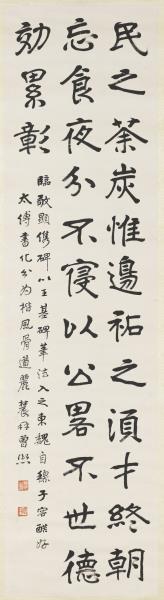 民之荼炭惟邊祐之須才終朝
忘食夜分不寑以公畧不世德
効累彰
臨敬顯儁碑以王基碑筆法入之東魏自穆子容酷好
太傅書化分為楷風骨遒麗農髯曾熙